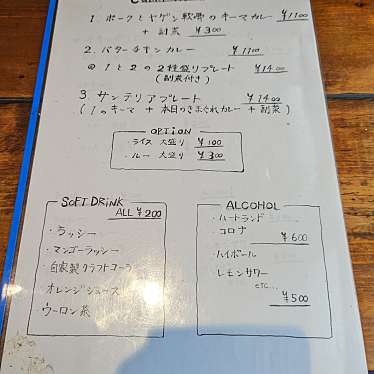 1. ポークとヤゲン軟骨のキーマカレー ¥1100
+ 副菜 ¥300
2. バターチキンカレー ¥1100
◎ 1と2の2種盛りプレート ¥1400
(副菜付き)
3. サンテリアプレート ¥1400
(1のキーマ + 本日のきまぐれカレー + 副菜)
OPTiON
・ライス 大盛り ¥100
・ルー 大盛り ¥300
SOFT DRiNK
ALL ¥200
・ラッシー
・マンゴーラッシー
・自家製クラフトコーラ
・オレンジジュース
・ウーロン茶
ALCOHOL
・ハートランド
・コロナ
¥600
・ハイボール
・レモンサワー
etc...
¥500